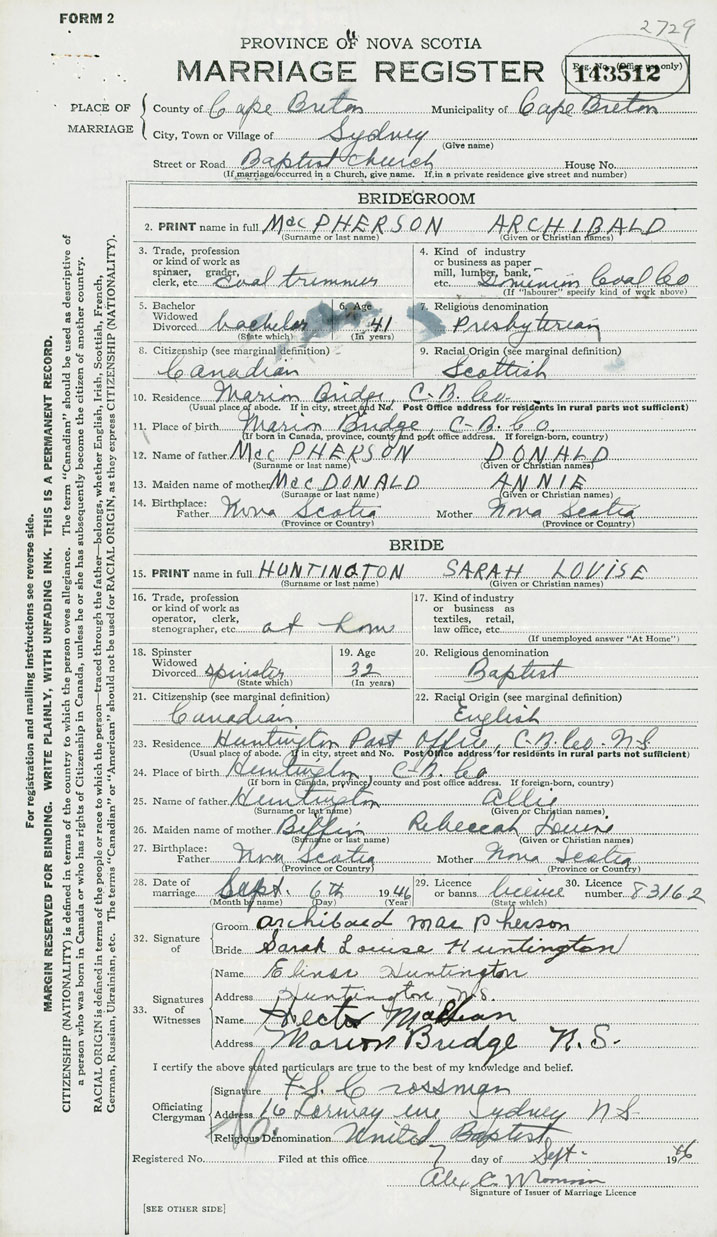 FORM 2
2729
PROVINCE OF NOVA SCOTIA
MARRIAGE REGISTER
Reg. No. (Office use only)
143512
PLACE OF MARRIAGE
County of Cape Breton Municipality of Cape Breton
City, Town or Village of Sydney
(Give name)
Street or Road Baptist Church House No.
(If marriage occurred in a Church, give name. If in a private residence give street and number)
BRIDEGROOM
2. PRINT name in full MacPHERSON ARCHIBALD
(Surname or last name) (Given or Christian names)
3. Trade, profession or kind of work as spinner, grader, clerk, etc. Coal trimmer
4. Kind of industry or business as paper mill, lumber, bank, etc. Dominion Coal Co
(If "labourer" specify kind of work above)
5. Bachelor Widowed Divorced bachelor
(State which)
6. Age 41
(In years)
7. Religious denomination
Presbyterian
8. Citizenship (see marginal definition)
Canadian
9. Racial Origin (see marginal definition)
Scottish
10. Residence Marion Bridge, C-B. Co.
(Usual place of abode. If in city, street and No. Post Office address for residents in rural parts not sufficient)
11. Place of birth Marion Bridge, C-B. Co.
(If born in Canada, province, county and post office address. If foreign-born, country)
12. Name of father MacPHERSON DONALD
(Surname or last name) (Given or Christian names)
13. Maiden name of mother MacDONALD ANNIE
(Surname or last name) (Given or Christian names)
14. Birthplace: Father Nova Scotia Mother Nova Scotia
(Province or Country) (Province or Country)
BRIDE
15. PRINT name in full HUNTINGTON SARAH LOUISE
(Surname or last name) (Given or Christian names)
16. Trade, profession or kind of work as operator, clerk, stenographer, etc at home
17. Kind of industry or business as textiles, retail, law office, etc.
(If unemployed answer "At Home")
18. Spinster Widowed Divorced spinster
(State which)
19. Age
32
(In years)
20. Religious denomination
Baptist
21. Citizenship (see marginal definition)
Canadian
22. Racial Origin (see marginal definition)
English
23. Residence Huntington Post Office, C.B. Co. N.S
(Usual place of abode. If in city, street and No. Post Office address for residents in rural parts not sufficient)
24. Place of birth Huntington C-B. Co
(If born in Canada, province, county and post office address. If foreign-born, country)
25. Name of father Huntington Allie
(Surname or last name) (Given or Christian names)
26. Maiden name of mother Rebeccah Louise
(Surname or last name) (Given or Christian names)
27. Birthplace: Father Nova Scotia Mother Nova Scotia
(Province or Country) (Province or Country)
28. Date of marriage Sept. 6th 1946
(Month by name) (Day) (Year)
29. Licence or banns licence
(State which)
30. Licence number 83162
32. Signature of
Groom Archibald MacPherson
Bride Sarah Louise Huntington
33. Signatures of Witnesses
Name Huntington
Address Huntington, N.S.
Name Hector
Address Marion Bridge N.S.
I certify the above stated particulars are true to the best of my knowledge and belief.
Officiating Clergyman
Signature F.S. Crossman
Address 16 Sydney N S
Religious Denomination United Baptist
Registered No. Filed at this office 7 day of Sept. 1946
Alex C.
Signature of Issuer of Marriage Licence
[SEE OTHER SIDE]
For registration and mailing instructions see reverse side.
MARGIN RESERVED FOR BINDING. WRITE PLAINLY, WITH UNFADING INK. THIS IS A PERMANENT RECORD.
CITIZENSHIP (NATIONALITY) is defined in terms of the country to which the person owes allegiance. The term "Canadian" should be used as descriptive of
a person who was born in Canada or who has rights of Citizenship in Canada, unless he or she has subsequently become the citizen of another country.
RACIAL ORIGIN is defined in terms of the people or race to which the person—traced through the father—belongs, whether English, Irish, Scottish, French,
German, Russian, Ukrainian, etc. The terms "Canadian" or "American" should not be used for RACIAL ORIGIN, as they express CITIZENSHIP (NATIONALITY).